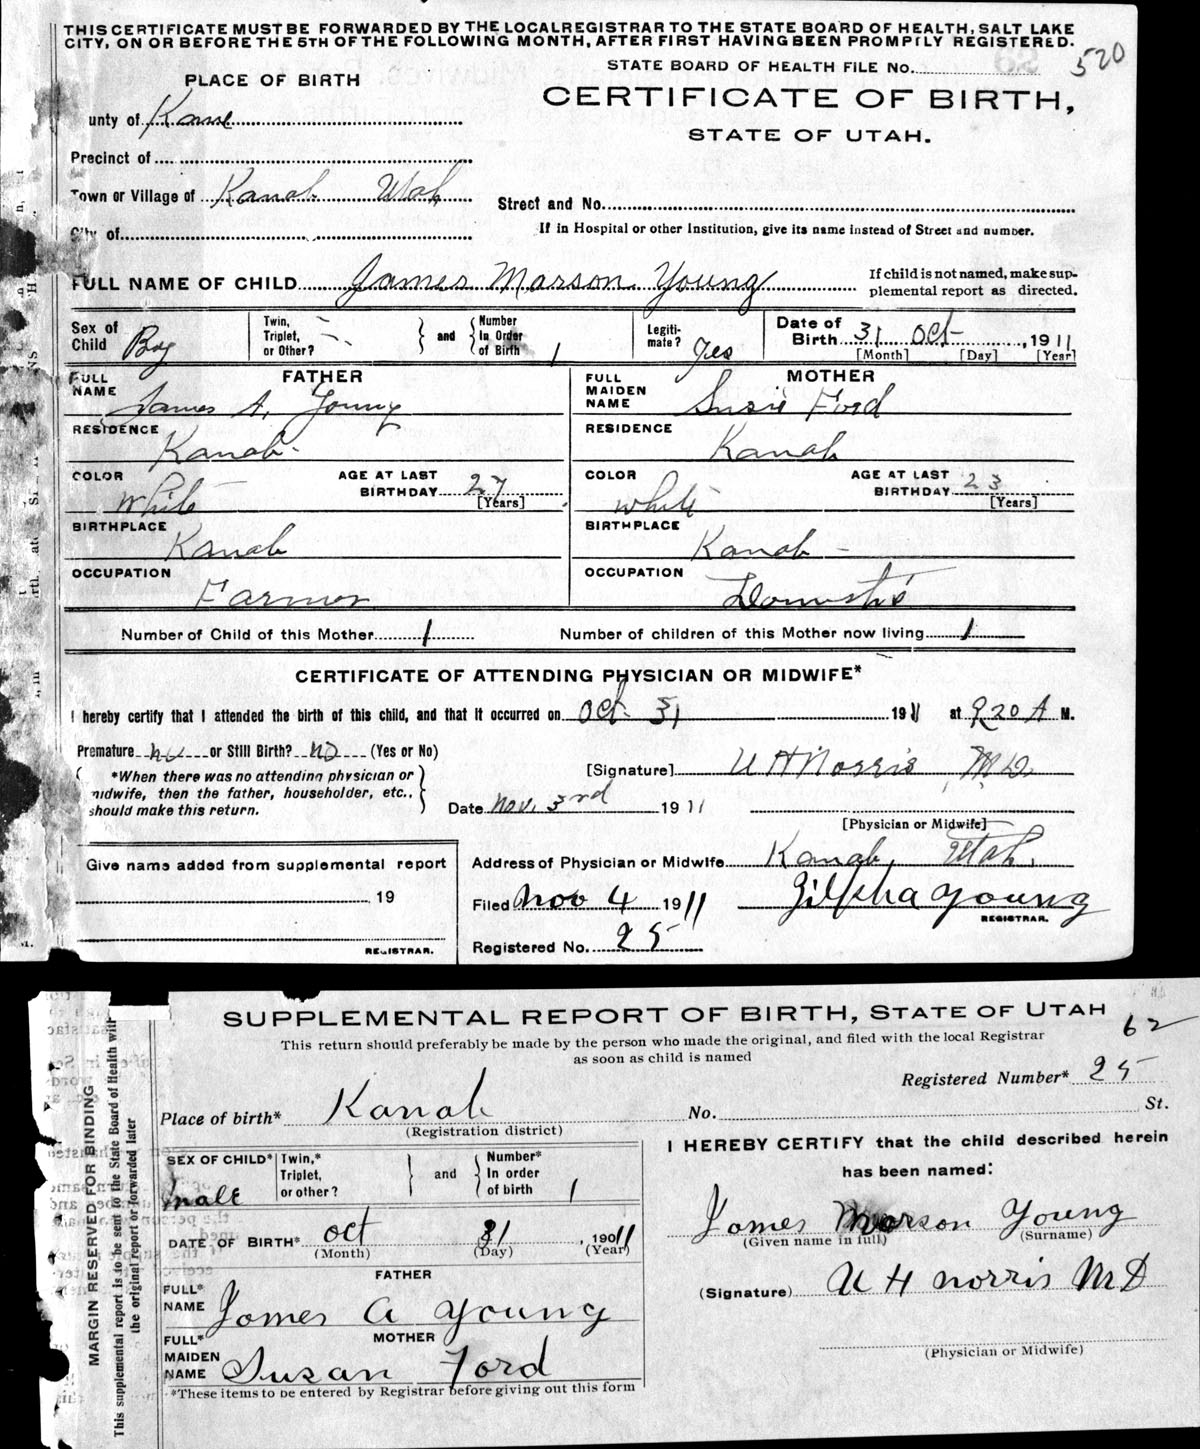 THIS CERTIFICATE MUST BE FORWARDED BY THE LOCAL REGISTRAR TO THE STATE BOARD OF HEALTH, SALT LAKE
CITY, ON OR BEFORE THE 5TH OF THE FOLLOWING MONTH, AFTER FIRST HAVING BEEN PROMPTLY REGISTERED.
STATE BOARD OF HEALTH FILE No. 520
PLACE OF BIRTH
CERTIFICATE OF BIRTH,
STATE OF UTAH.
unty of Kane
Precinct of
Town or Village of Kanab Utah
Street and No.
City of
If in Hospital or other Institution, give its name instead of Street and number.
FULL NAME OF CHILD James Marson Young
If child is not named, make sup-
plemental report as directed.
Sex of Child Boy
Twin, Triplet, or Other?
and
Number In Order of Birth 1
Legiti-mate? Yes
Date of Birth 31 Oct, 1911
[Month] [Day] [Year]
FATHER
FULL NAME James A. Young
RESIDENCE Kanab
COLOR White
AGE AT LAST BIRTHDAY 27 [Years]
BIRTHPLACE Kanab
OCCUPATION Farmer
MOTHER
FULL MAIDEN NAME Susie Ford
RESIDENCE Kanab
COLOR White
AGE AT LAST BIRTHDAY 23 [Years]
BIRTHPLACE Kanab
OCCUPATION Domestic
Number of Child of this Mother 1
Number of children of this Mother now living 1
CERTIFICATE OF ATTENDING PHYSICIAN OR MIDWIFE*
I hereby certify that I attended the birth of this child, and that it occurred on Oct 31 1911 at 9 20 A M.
Premature no or Still Birth? no (Yes or No)
*When there was no attending physician or
midwife, then the father, householder, etc.,
should make this return.
[Signature] U H Norris M D.
Date Nov. 3rd 1911
[Physician or Midwife]
Give name added from supplemental report
19
REGISTRAR.
Address of Physician or Midwife Kanab, Utah.
Filed Nov 4 1911
Zilpha Young
REGISTRAR.
Registered No. 25
SUPPLEMENTAL REPORT OF BIRTH, STATE OF UTAH
62
This return should preferably be made by the person who made the original, and filed with the local Registrar
as soon as child is named
Registered Number* 25
Place of birth* Kanab
No. St.
(Registration district)
SEX OF CHILD* male
Twin,* Triplet, or other?
and
Number* In order of birth 1
DATE OF BIRTH* Oct 31, 1911
(Month) (Day) (Year)
FATHER
FULL* NAME James A Young
MOTHER
FULL* MAIDEN NAME Susan Ford
*These items to be entered by Registrar before giving out this form
I HEREBY CERTIFY that the child described herein
has been named:
James Marson Young
(Given name in full) (Surname)
(Signature) U H Norris M D
(Physician or Midwife)
MARGIN RESERVED FOR BINDING
This supplemental report is to be sent to the State Board of Health with
the original report or forwarded later